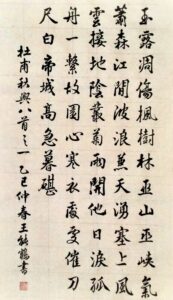 玉露凋傷楓樹林巫山巫峽氣
蕭森江間波浪兼天湧塞上風
雲接地陰叢菊兩開他日淚孤
舟一繫故園心寒衣處處催刀
尺白帝城高急暮碪
杜甫秋興八首之一乙巳仲春王書